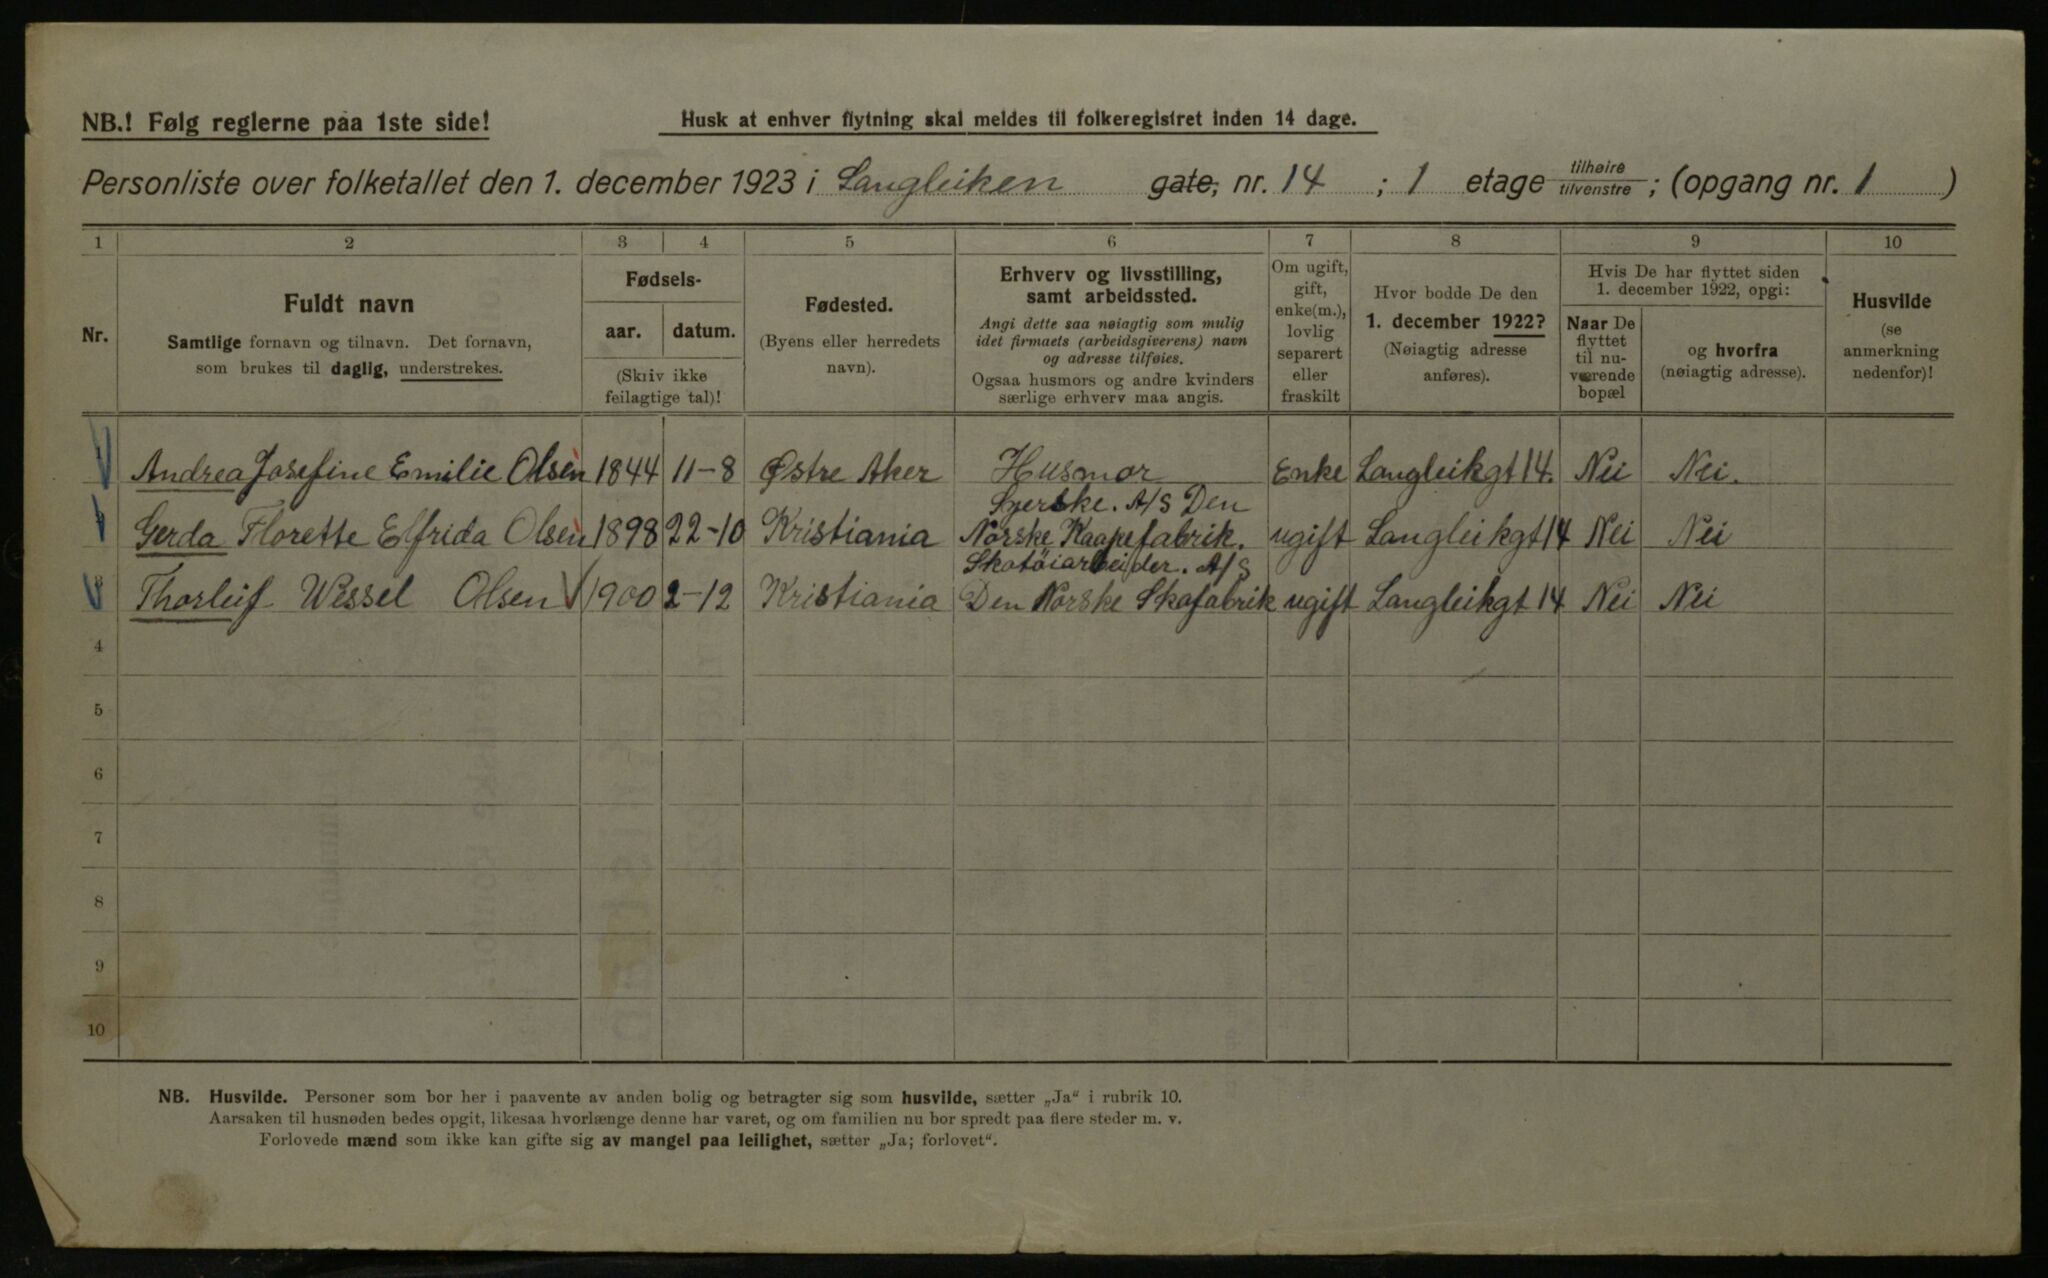 NB.! Følg reglerne paa 1ste side!
Husk at enhver flytning skal meldes til folkeregistret inden 14 dage.
Personliste over folketallet den 1. december 1923 i Langleiken gate, nr. 14 ; 1 etage tilhøire tilvenstre ; (opgang nr. 1 )
1 2 3 4 5 6 7 8 9 10
Nr.
Fuldt navn
Samtlige fornavn og tilnavn. Det fornavn,
som brukes til daglig, understrekes.
Fødsels-
aar. datum.
(Skriv ikke
feilagtige tal)!
Fødested.
(Byens eller herredets
navn).
Erhverv og livsstilling,
samt arbeidssted.
Angi dette saa nøiagtig som mulig
idet firmaets (arbeidsgiverens) navn
og adresse tilføies.
Ogsaa husmors og andre kvinders
særlige erhverv maa angis.
Om ugift,
gift,
enke(m.),
lovlig
separert
eller
fraskilt
Hvor bodde De den
1. december 1922?
(Nøiagtig adresse
anføres).
Hvis De har flyttet siden
1. december 1922, opgi:
Naar De
flyttet
til nu-
værende
bopæl
og hvorfra
(nøiagtig adresse).
Husvilde
(se
anmerkning
nedenfor)!
1 Andrea Josefine Emilie Olsen 1844 11-8 Østre Aker Husmor Enke Langleikgt 14. Nei Nei.
Syerske. A/S Den
2 Gerda Florette Elfrida Olsen 1898 22-10 Kristiania Norske Kaapefabrik. ugift Langleikgt 14 Nei Nei
Skotöiarbeider. A/S
3 Thorleif Wessel Olsen 1900 2-12 Kristiania Den Norske Skofabrik ugift Langleikgt 14 Nei Nei
4
5
6
7
8
9
10
NB. Husvilde. Personer som bor her i paavente av anden bolig og betragter sig som husvilde, sætter „Ja" i rubrik 10.
Aarsaken til husnøden bedes opgit, likesaa hvorlænge denne har varet, og om familien nu bor spredt paa flere steder m. v.
Forlovede mænd som ikke kan gifte sig av mangel paa leilighet, sætter „Ja; forlovet".